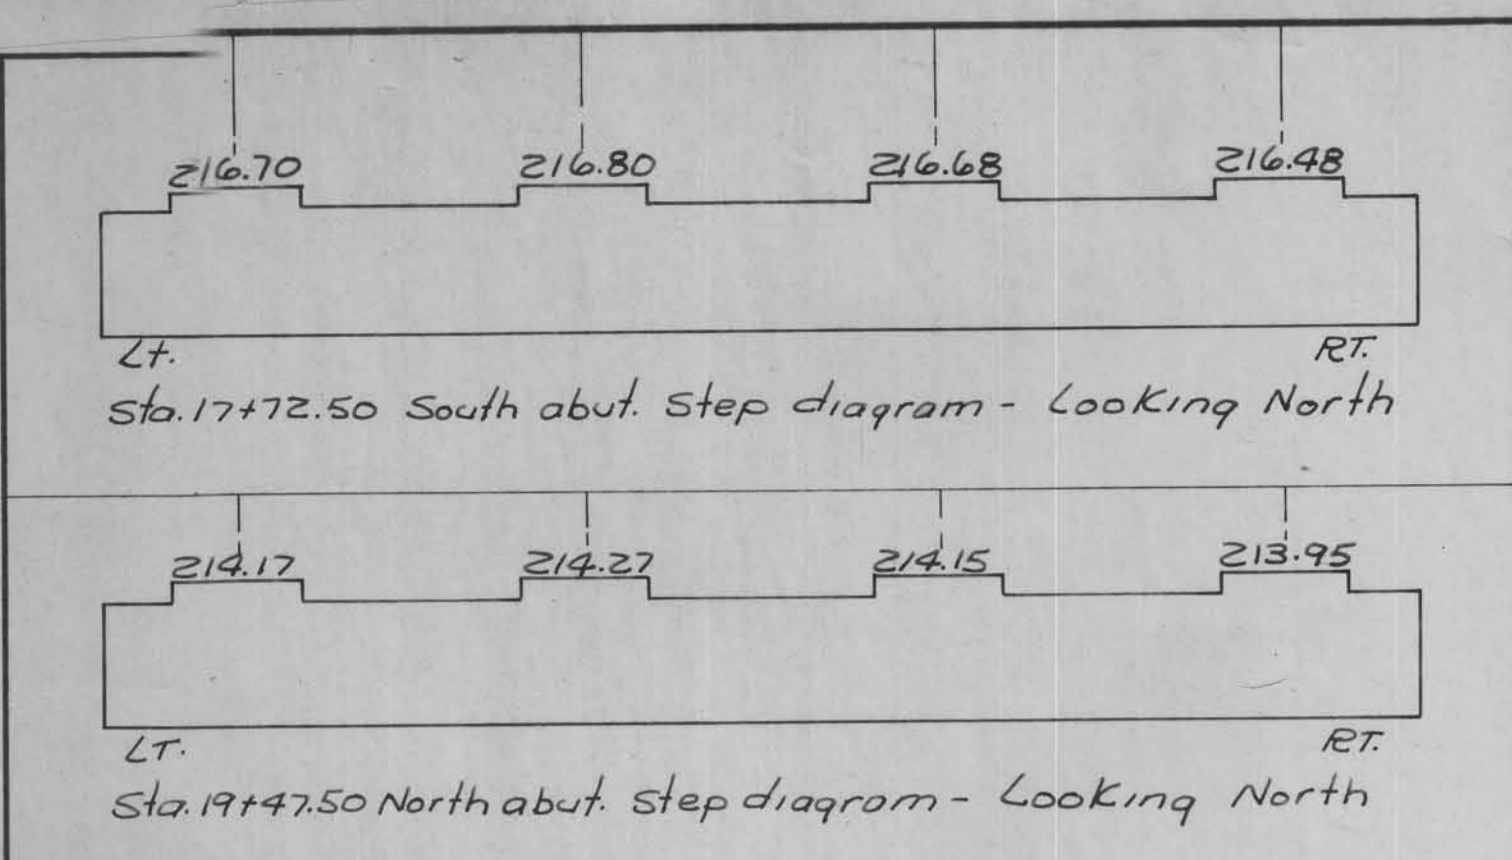 216.70 216.80 216.68 216.48
Lt. RT.
Sta. 17+72.50 South abut. Step diagram - Looking North
214.17 214.27 214.15 213.95
LT. RT.
Sta. 19+47.50 North abut. Step diagram - Looking North